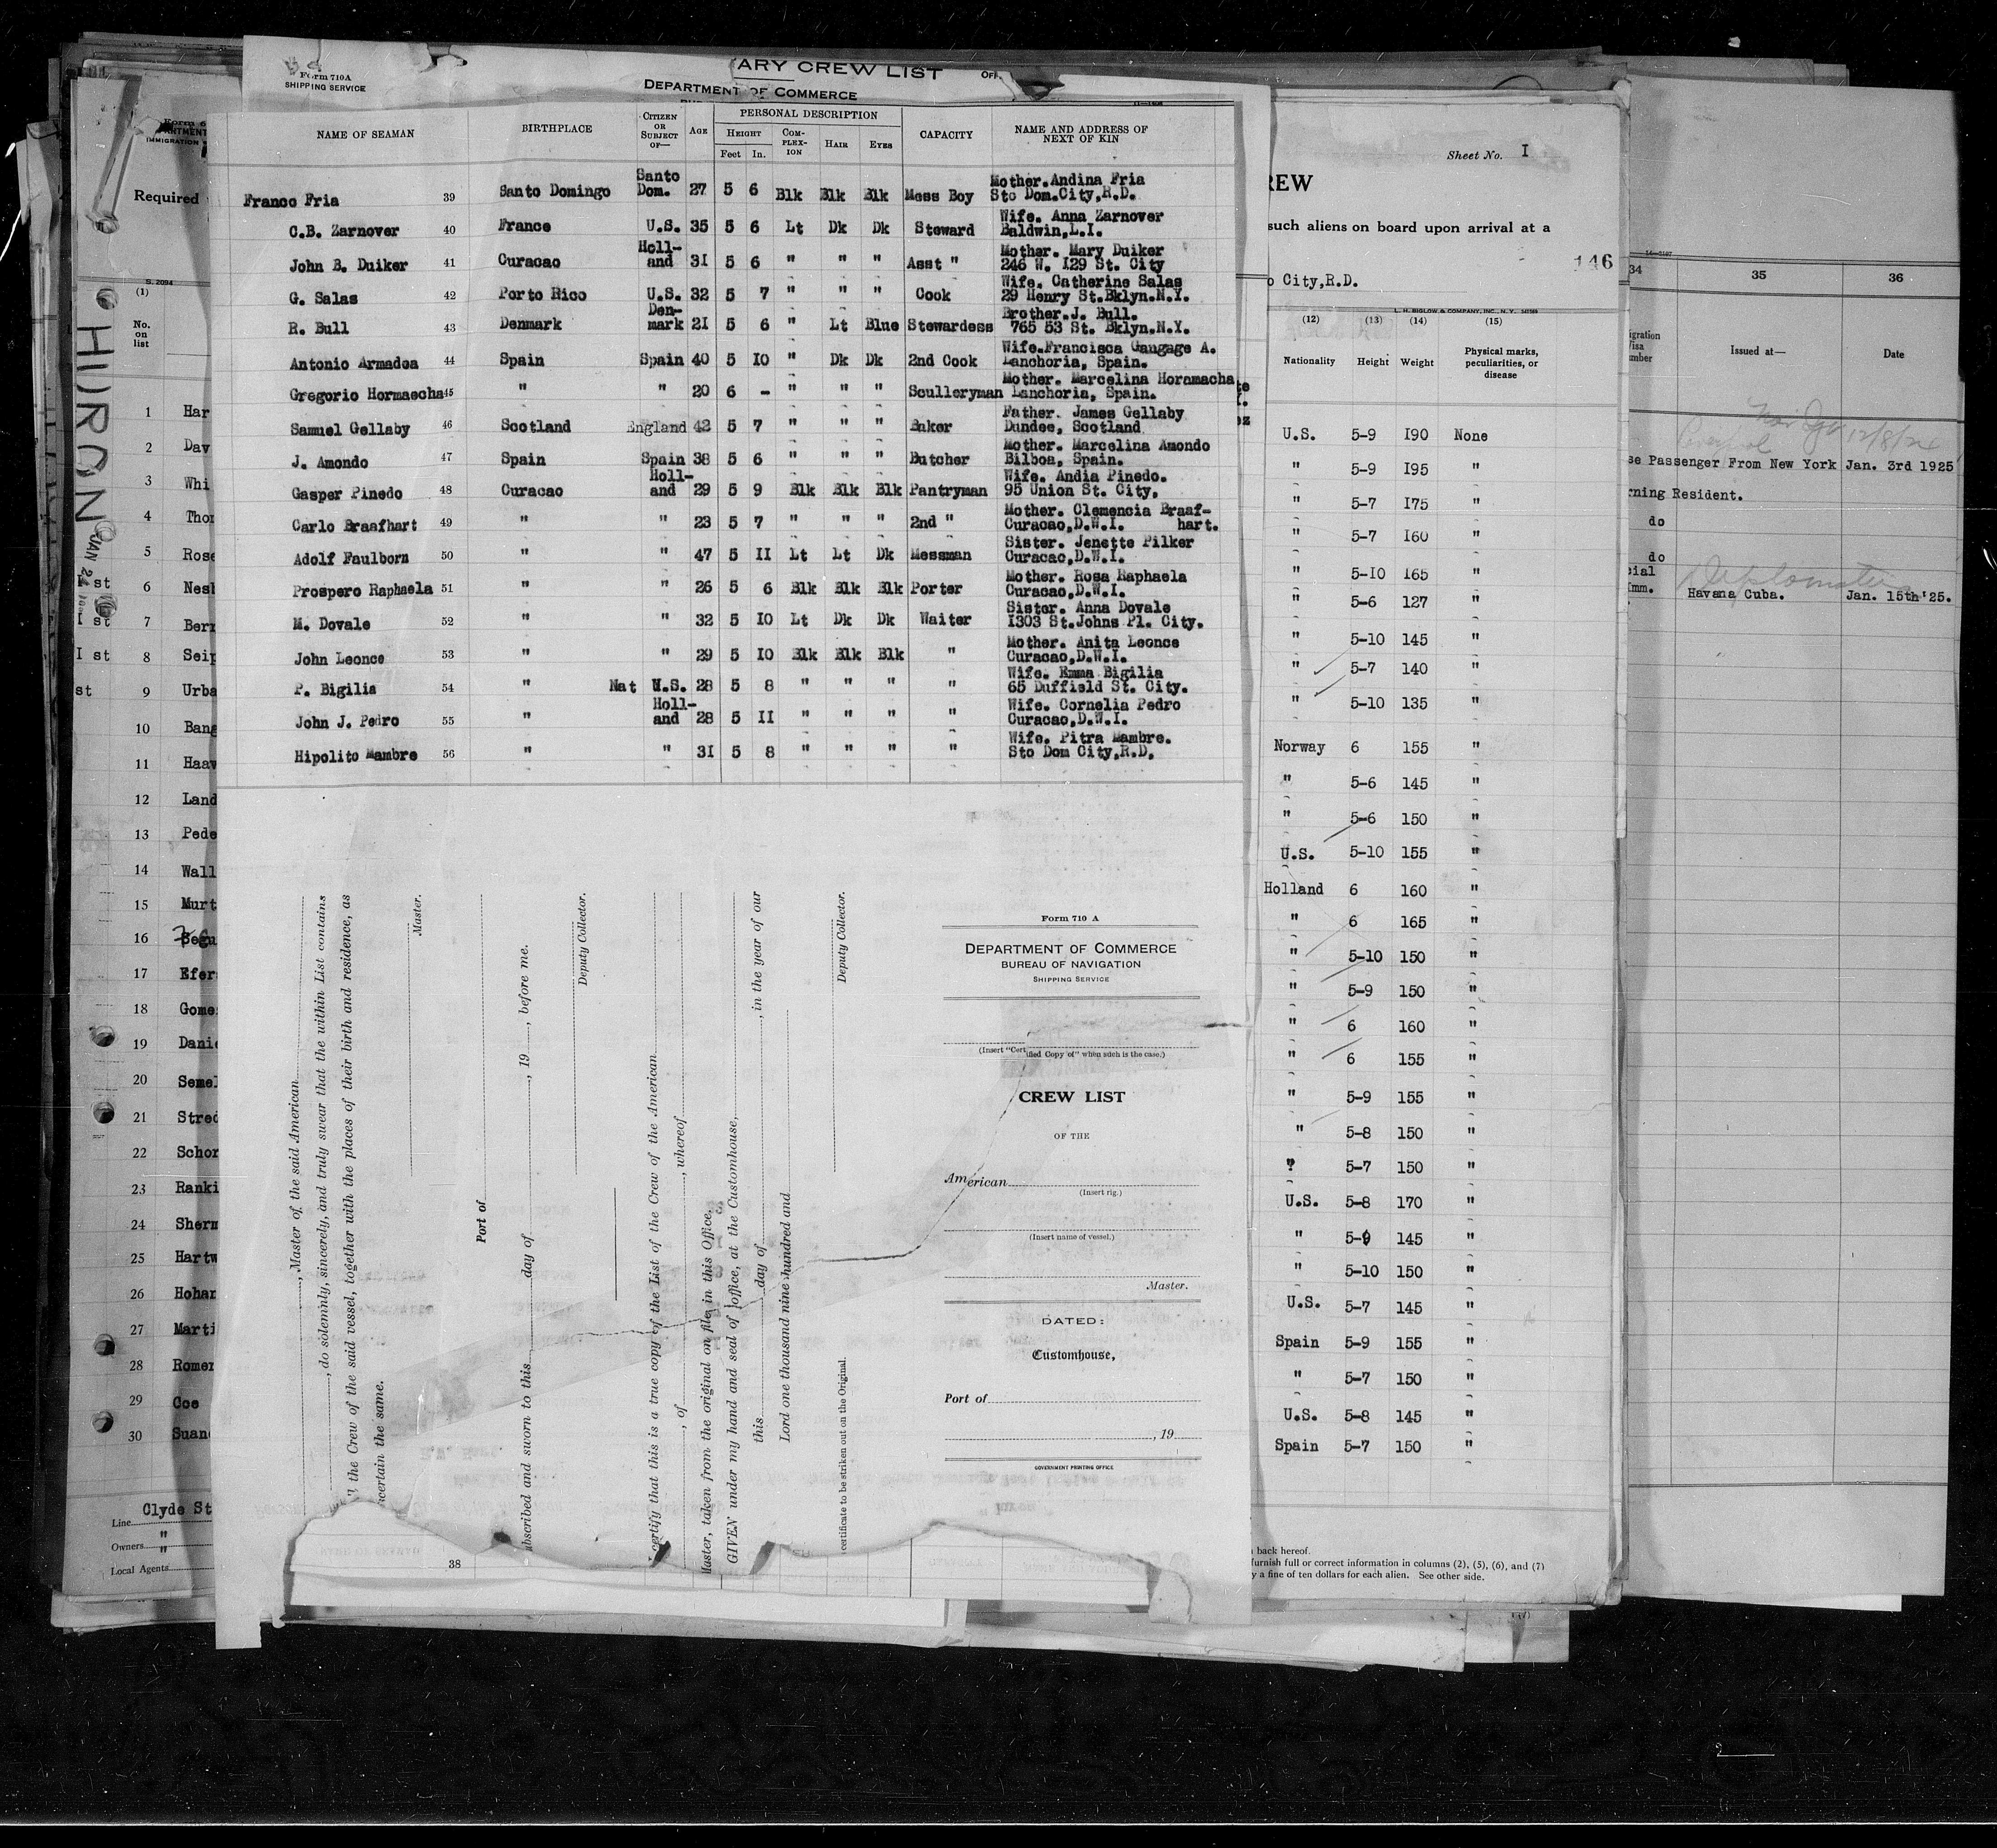 ARY CREW LIST
Form 710A
SHIPPING SERVICE
DEPARTMENT OF COMMERCE
NAME OF SEAMAN BIRTHPLACE CITIZEN OR SUBJECT OF— AGE PERSONAL DESCRIPTION HEIGHT Feet In. COM-PLEX-ION HAIR EYES CAPACITY NAME AND ADDRESS OF NEXT OF KIN
Franco Fria 39 Santo Domingo Santo Dom. 27 5 6 Blk Blk Blk Mess Boy Mother. Andina Fria
Sto Dom.City,R.D.
C.B. Zarnover 40 France U.S. 35 5 6 Lt Dk Dk Steward Wife. Anna Zarnover
Baldwin,L.I.
John B. Duiker 41 Curacao Holl-and 31 5 6 " " " Asst " Mother. Mary Duiker
246 W. 129 St. City
G. Salas 42 Porto Rico U.S. 32 5 7 " " " Cook Wife. Catherine Salas
29 Henry St.Bklyn.N.Y.
R. Bull 43 Denmark Den-mark 21 5 6 " Lt Blue Stewardess Brother.J. Bull.
765 53 St. Bklyn.N.Y.
Antonio Armadoa 44 Spain Spain 40 5 10 " Dk Dk 2nd Cook Wife.Francisca Gangage A.
Lanchoria, Spain.
Gregorio Hormaecha 45 " " 20 6 - " " " Sculleryman Mother. Marcelina Horamacha
Lanchoria, Spain.
Samuel Gellaby 46 Scotland England 42 5 7 " " " Baker Father. James Gellaby
Dundee, Scotland
J. Amondo 47 Spain Spain 38 5 6 " " " Butcher Mother. Marcelina Amondo
Bilboa, Spain.
Gasper Pinedo 48 Curacao Holl-and 29 5 9 Blk Blk Blk Pantryman Wife. Andia Pinedo.
95 Union St. City.
Carlo Braafhart 49 " " 23 5 7 " " " 2nd " Mother. Clemencia Braaf-
Curacao,D.W.I. hart.
Adolf Faulborn 50 " " 47 5 11 Lt Lt Dk Messman Sister. Jenette Pilker
Curacao,D.W.I.
Prospero Raphaela 51 " " 26 5 6 Blk Blk Blk Porter Mother. Rosa Raphaela
Curacao,D.W.I.
M. Dovale 52 " " 32 5 10 Lt Dk Dk Waiter Sister. Anna Dovale
1303 St.Johns Pl. City.
John Leonce 53 " " 29 5 10 Blk Blk Blk " Mother. Anita Leonce
Curacao,D.W.I.
P. Bigilia 54 " Nat U.S. 28 5 8 " " " " Wife. Emma Bigilia
65 Duffield St. City.
John J. Pedro 55 " Holl-and 28 5 11 " " " " Wife. Cornelia Pedro
Curacao,D.W.I.
Hipolito Mambre 56 " " 31 5 8 " " " " Wife. Pitra Mambre.
Sto Dom City,R.D.
, Master of the said American
, do solemnly, sincerely, and truly swear that the within List contains
the Crew of the said vessel, together with the places of their birth and residence, as
certain the same.
Master.
Port of
bscribed and sworn to this day of , 19 , before me.
Deputy Collector.
certify that this is a true copy of the List of the Crew of the American
, of , whereof
Master, taken from the original on file in this Office.
GIVEN under my hand and seal of office, at the Customhouse,
this day of , in the year of our
Lord one thousand nine hundred and
Deputy Collector.
certificate to be striken out on the Original.
Form 710 A
DEPARTMENT OF COMMERCE
BUREAU OF NAVIGATION
SHIPPING SERVICE
(Insert "Certified Copy of" when such is the case.)
CREW LIST
OF THE
American
(Insert rig.)
(Insert name of vessel.)
Master.
DATED:
Customhouse,
Port of
, 19
GOVERNMENT PRINTING OFFICE
38
IMMIGRATION
Required
S. 2094
HURON
JAN
(1)
No. on list
1 Har
2 Dav
3 Whi
4 Thor
5 Rose
1 st 6 Nesb
1 st 7 Berr
1 st 8 Seip
st 9 Urba
10 Bang
11 Haav
12 Land
13 Pede
14 Wall
15 Murt
16 Segu
17 Efer
18 Gome
19 Danie
20 Semel
21 Stred
22 Schor
23 Ranki
24 Sherm
25 Hartw
26 Hohan
27 Marti
28 Romer
29 Coe
30 Suan
Line Clyde St
Owners "
Local Agents "
Sheet No. 1
REW
such aliens on board upon arrival at a
146
o City,R.D.
L. H. BIGLOW & COMPANY, INC., N. Y.
(12) (13) (14) (15)
Nationality Height Weight Physical marks, peculiarities, or disease
U.S. 5-9 190 None
" 5-9 195 "
" 5-7 175 "
" 5-7 160 "
" 5-10 165 "
" 5-6 127 "
" 5-10 145 "
" 5-7 140 "
" 5-10 135 "
Norway 6 155 "
" 5-6 145 "
" 5-6 150 "
U.S. 5-10 155 "
Holland 6 160 "
" 6 165 "
" 5-10 150 "
" 5-9 150 "
" 6 160 "
" 6 155 "
" 5-9 155 "
" 5-8 150 "
" 5-7 150 "
U.S. 5-8 170 "
" 5-9 145 "
" 5-10 150 "
U.S. 5-7 145 "
Spain 5-9 155 "
" 5-7 150 "
U.S. 5-8 145 "
Spain 5-7 150 "
back hereof.
furnish full or correct information in columns (2), (5), (6), and (7)
y a fine of ten dollars for each alien. See other side.
34 35 36
Issued at— Date
12/8/24
se Passenger From New York Jan. 3rd 1925
rning Resident.
do
do
cial
Imm. Havana Cuba. Jan. 15th'25.